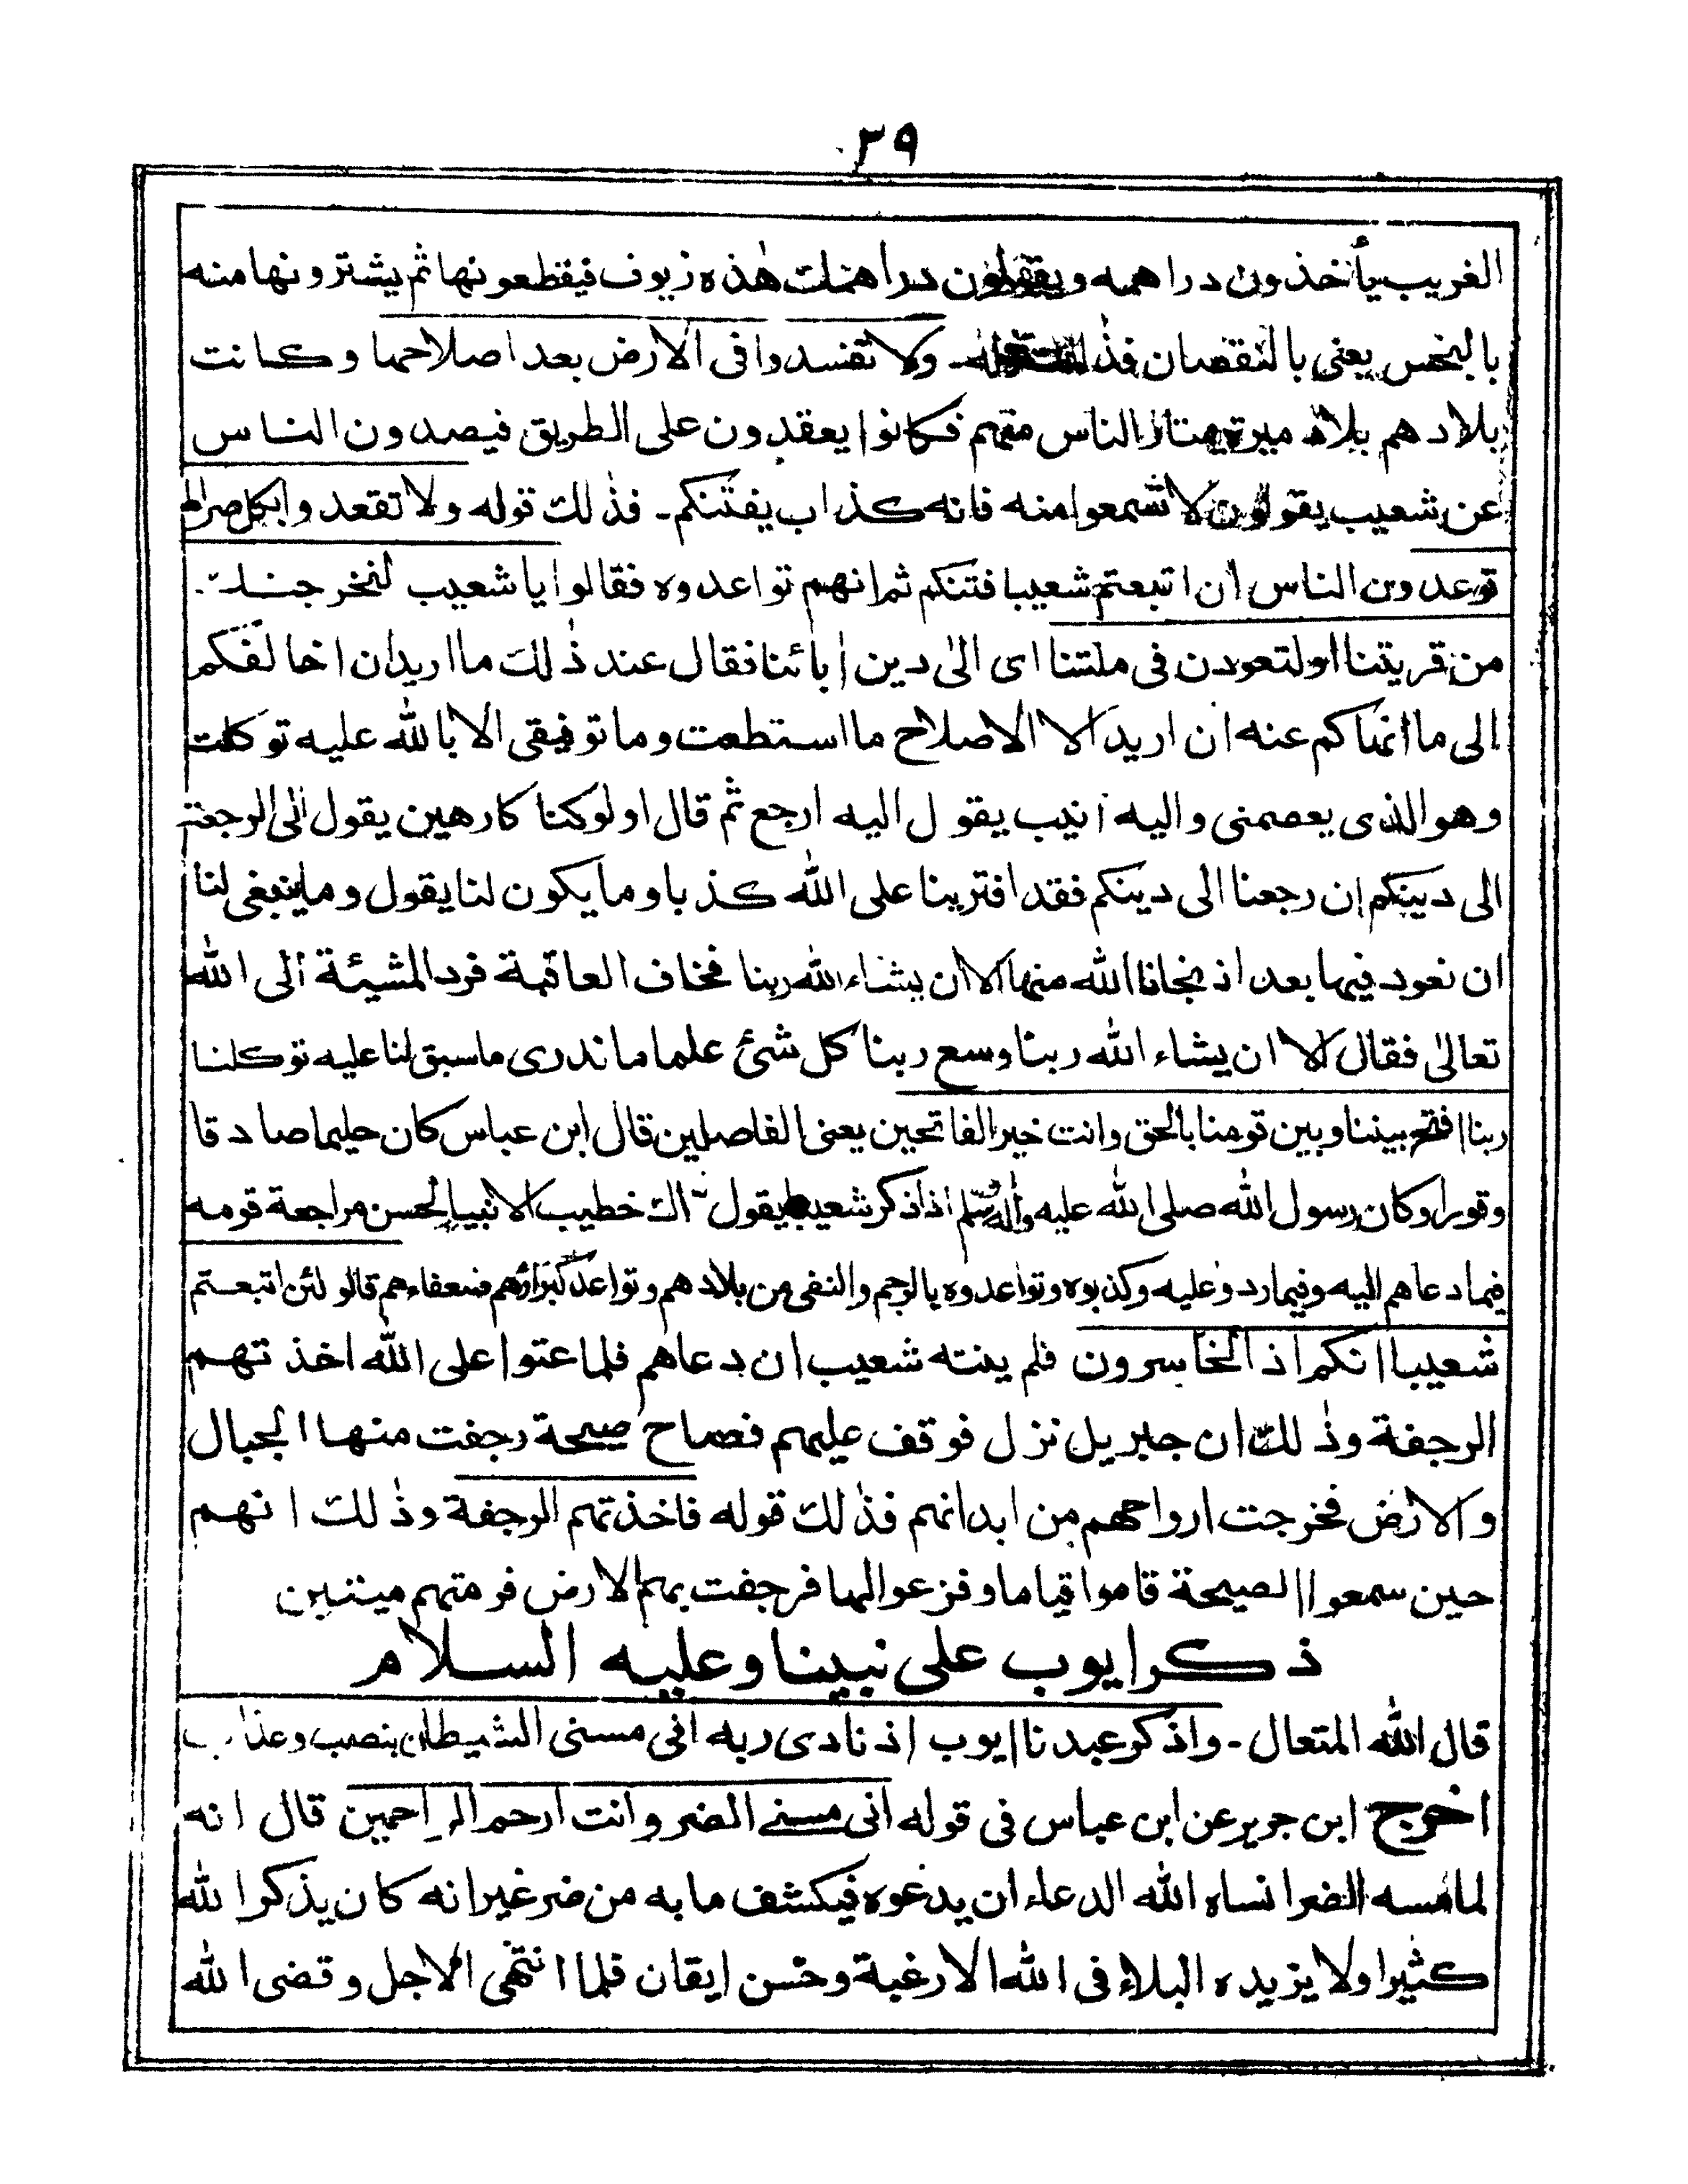 ٣٩
الغريب يأخذون دراهمه ويقولون دراهمك هٰذه زيوف فيقطعونها ثم يشترونها منه
بالبخس يعنى بالنقصان فذٰلك قوله ۔ ولا تفسدوا فى الارض بعد اصلاحها وكانت
بلادهم بلاد ميرة يمتار الناس منهم فكانوا يعقدون على الطريق فيصدون الناس
عن شعيب يقولون لا تسمعوا منه فانه كذاب يفتنكم ۔ فذٰلك قوله ولا تقعدوا بكل صراط
توعدون الناس ان اتبعتم شعيبا فتنكم ثم انهم تواعدوه فقالوا يا شعيب لنخرجنك
من قريتنا او لتعودن فى ملتنا اى الىٰ دين اٰبائنا فقال عند ذٰلك ما اريد ان اخالفكم
الى ما انهاكم عنه ان اريد الا الاصلاح ما استطعت وما توفيقى الا بالله عليه توكلت
وهو الذى يعصمنى واليه انيب يقول اليه ارجع ثم قال اولو كنا كارهين يقول الى الرجعة
الى دينكم ان رجعنا الى دينكم فقد افترينا على الله كذبا وما يكون لنا يقول وما ينبغى لنا
ان نعود فيها بعد اذ نجانا الله منها الا ان يشاء الله ربنا فخاف العاقبة فرد المشيئة الى الله
تعالىٰ فقال الا ان يشاء الله ربنا وسع ربنا كل شئ علما ما ندرى ما سبق لنا عليه توكلنا
ربنا افتح بيننا وبين قومنا بالحق وانت خير الفاتحين يعنى الفاصلين قال ابن عباس كان حليما صادقا
وقورا وكان رسول الله صلى الله عليه واٰله وسلم اذا ذكر شعيبا يقول ذاك خطيب الانبياء لحسن مراجعة قومه
فيما دعاهم اليه وفيما ردوا عليه وكذبوه وتواعدوه بالرجم والنفى من بلادهم وتواعد كبراؤهم ضعفاءهم قالو لئن اتبعتم
شعيبا انكم اذا لخاسرون فلم ينته شعيب ان دعاهم فلما عتوا على الله اخذتهم
الرجفة وذٰلك ان جبريل نزل فوقف عليهم فصاح صيحة رجفت منها الجبال
والارض فخرجت ارواحهم من ابدانهم فذٰلك قوله فاخذتهم الرجفة وذٰلك انهم
حين سمعوا الصيحة قاموا قياما وفزعوا لها فرجفت بهم الارض فرمتهم ميتين
ذكر ايوب على نبينا وعليه السلام
قال الله المتعال ۔ واذكر عبدنا ايوب اذ نادى ربه انى مسنى الشيطان بنصب وعذاب
اخرج ابن جرير عن ابن عباس فى قوله انى مسنى الضر وانت ارحم الراحمين قال انه
لما مسه الضر انساه الله الدعاء ان يدعوه فيكشف ما به من ضر غير انه كان يذكر الله
كثيرا ولا يزيده البلاء فى الله الا رغبة وحسن ايقان فلما انتهى الاجل وقضى الله